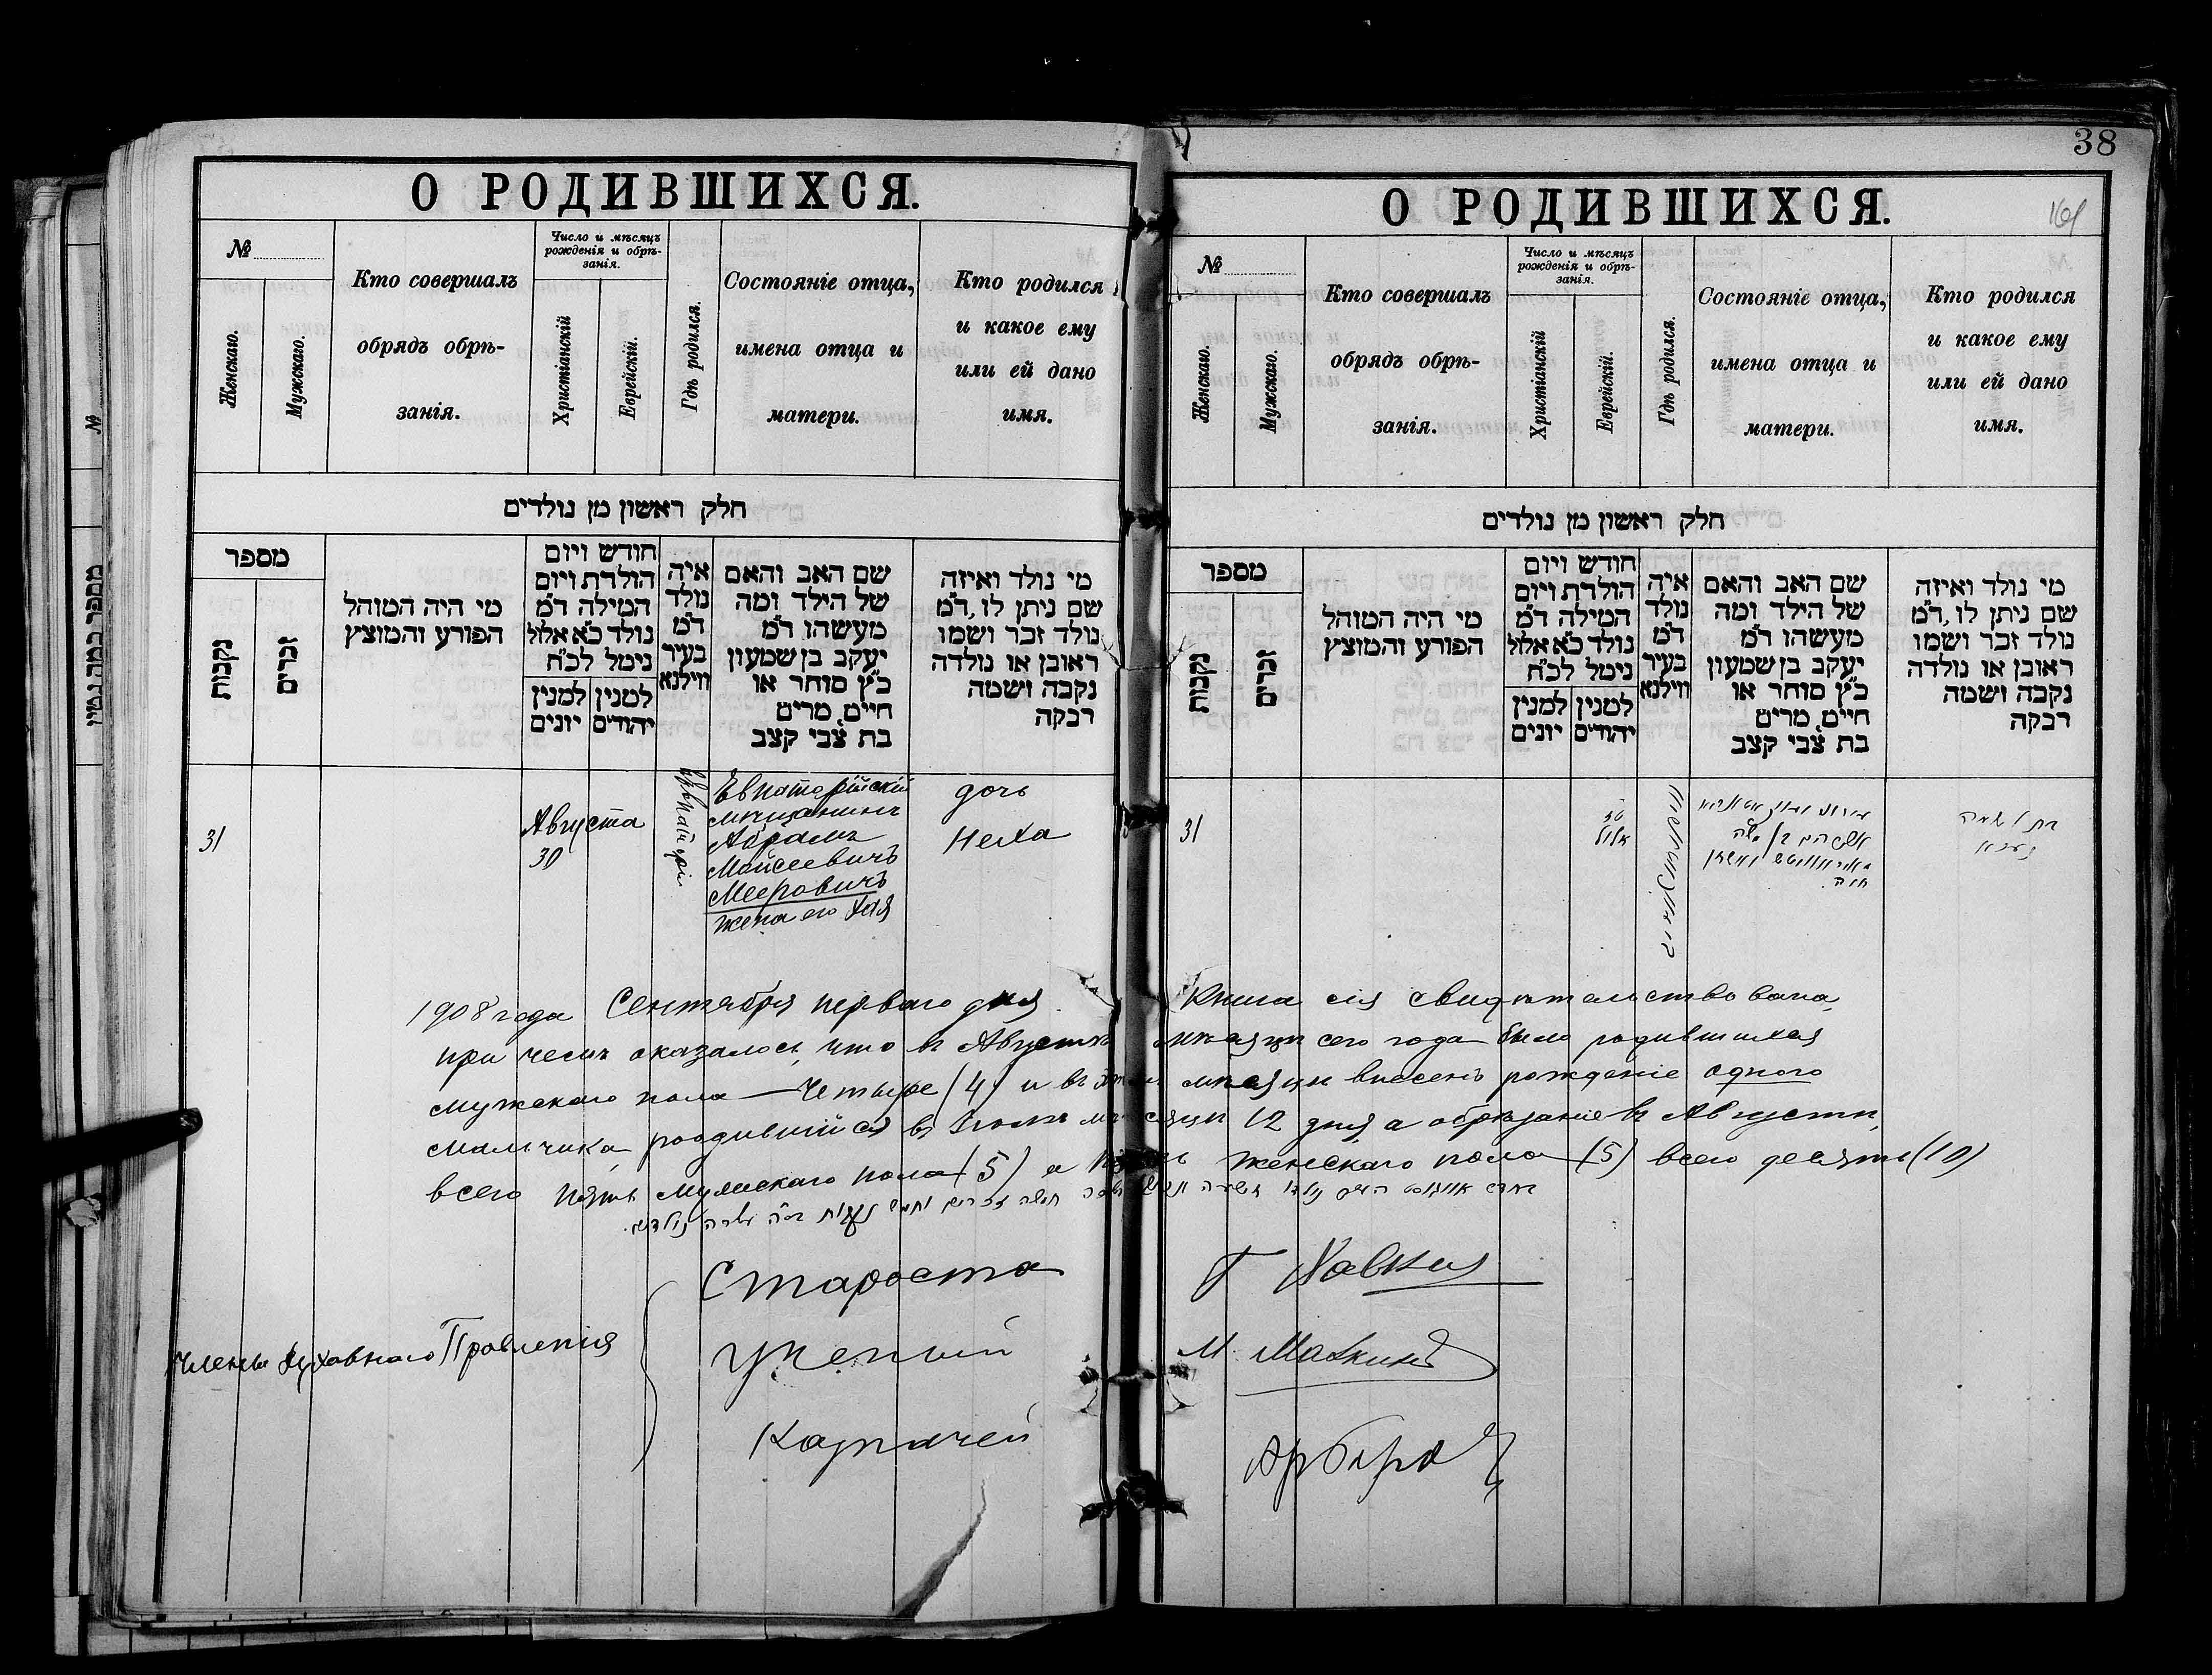 О РОДИВШИХСЯ.
№
Женскаго.
Мужскаго.
Кто совершалъ
обрядъ обрѣ-
занія.
Число и мѣсяцъ
рожденія и обрѣ-
занія.
Христіанскій
Еврейскій.
Гдѣ родился.
Состояніе отца,
имена отца и
матери.
Кто родился
и какое ему
или ей дано
имя.
חלק ראשון מן נולדים
מספר
נקבות
זכרים
מי היה המוהל
הפורע והמוצץ
חודש ויום
הולדת ויום
המילה ד״מ
נולד כ״א אלול
נימל לכ״ח
למנין
יונים
למנין
יהודים
איה
נולד
ד״מ
בעיר
ווילנא
שם האב והאם
של הילד ומה
מעשהו ד״מ
יעקב בן שמעון
כ״ץ סוחר או
חיים, מרים
בת צבי קצב
מי נולד ואיזה
שם ניתן לו, ד״מ
נולד זכר ושמו
ראובן או נולדה
נקבה ושמה
רבקה
31
Августа
30
Евпаторійскій
мѣщанинъ
Абрамъ
Мойсеевичъ
Мееровичъ
жена его Хая
дочь
Неха
38
О РОДИВШИХСЯ.
№
Женскаго.
Мужскаго.
Кто совершалъ
обрядъ обрѣ-
занія.
Число и мѣсяцъ
рожденія и обрѣ-
занія.
Христіанскій
Еврейскій.
Гдѣ родился.
Состояніе отца,
имена отца и
матери.
Кто родился
и какое ему
или ей дано
имя.
חלק ראשון מן נולדים
מספר
נקבות
זכרים
מי היה המוהל
הפורע והמוצץ
חודש ויום
הולדת ויום
המילה ד״מ
נולד כ״א אלול
נימל לכ״ח
למנין
יונים
למנין
יהודים
איה
נולד
ד״מ
בעיר
ווילנא
שם האב והאם
של הילד ומה
מעשהו ד״מ
יעקב בן שמעון
כ״ץ סוחר או
חיים, מרים
בת צבי קצב
מי נולד ואיזה
שם ניתן לו, ד״מ
נולד זכר ושמו
ראובן או נולדה
נקבה ושמה
רבקה
31
אלול
1908 года Сентября перваго дня Книга сія свидѣтельствована,
при чемъ оказалось, что въ Августѣ мѣсяцѣ сего года было родившихся
мужскаго пола — Четыре (4) и въ мѣсяцѣ внесенъ рожденіе одного
мальчика, родившійся въ Іюлѣ мѣсяцѣ 12 дня, а обрѣзаніе въ Августѣ,
всего пять мужскаго пола (5) а пять женскаго пола (5) всего десять (10)
Члены Духовнаго Правленія
Староста
Ученый
Казначей